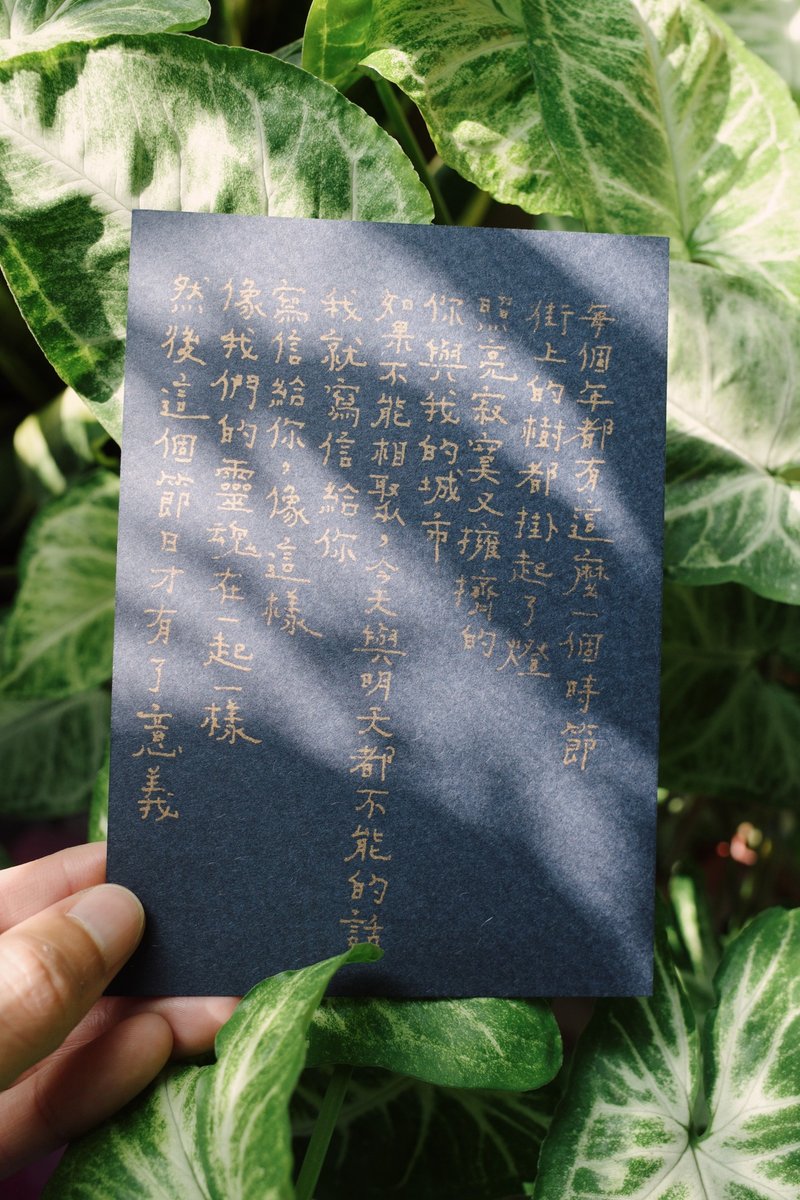 每個年都有這麼一個時節
街上的樹都掛起了燈
照亮寂寞又擁擠的
你與我的城市
如果不能相聚，今天與明天都不能的話
我就寫信給你
寫信給你，像這樣
像我們的靈魂在一起一樣
然後這個節日才有了意義